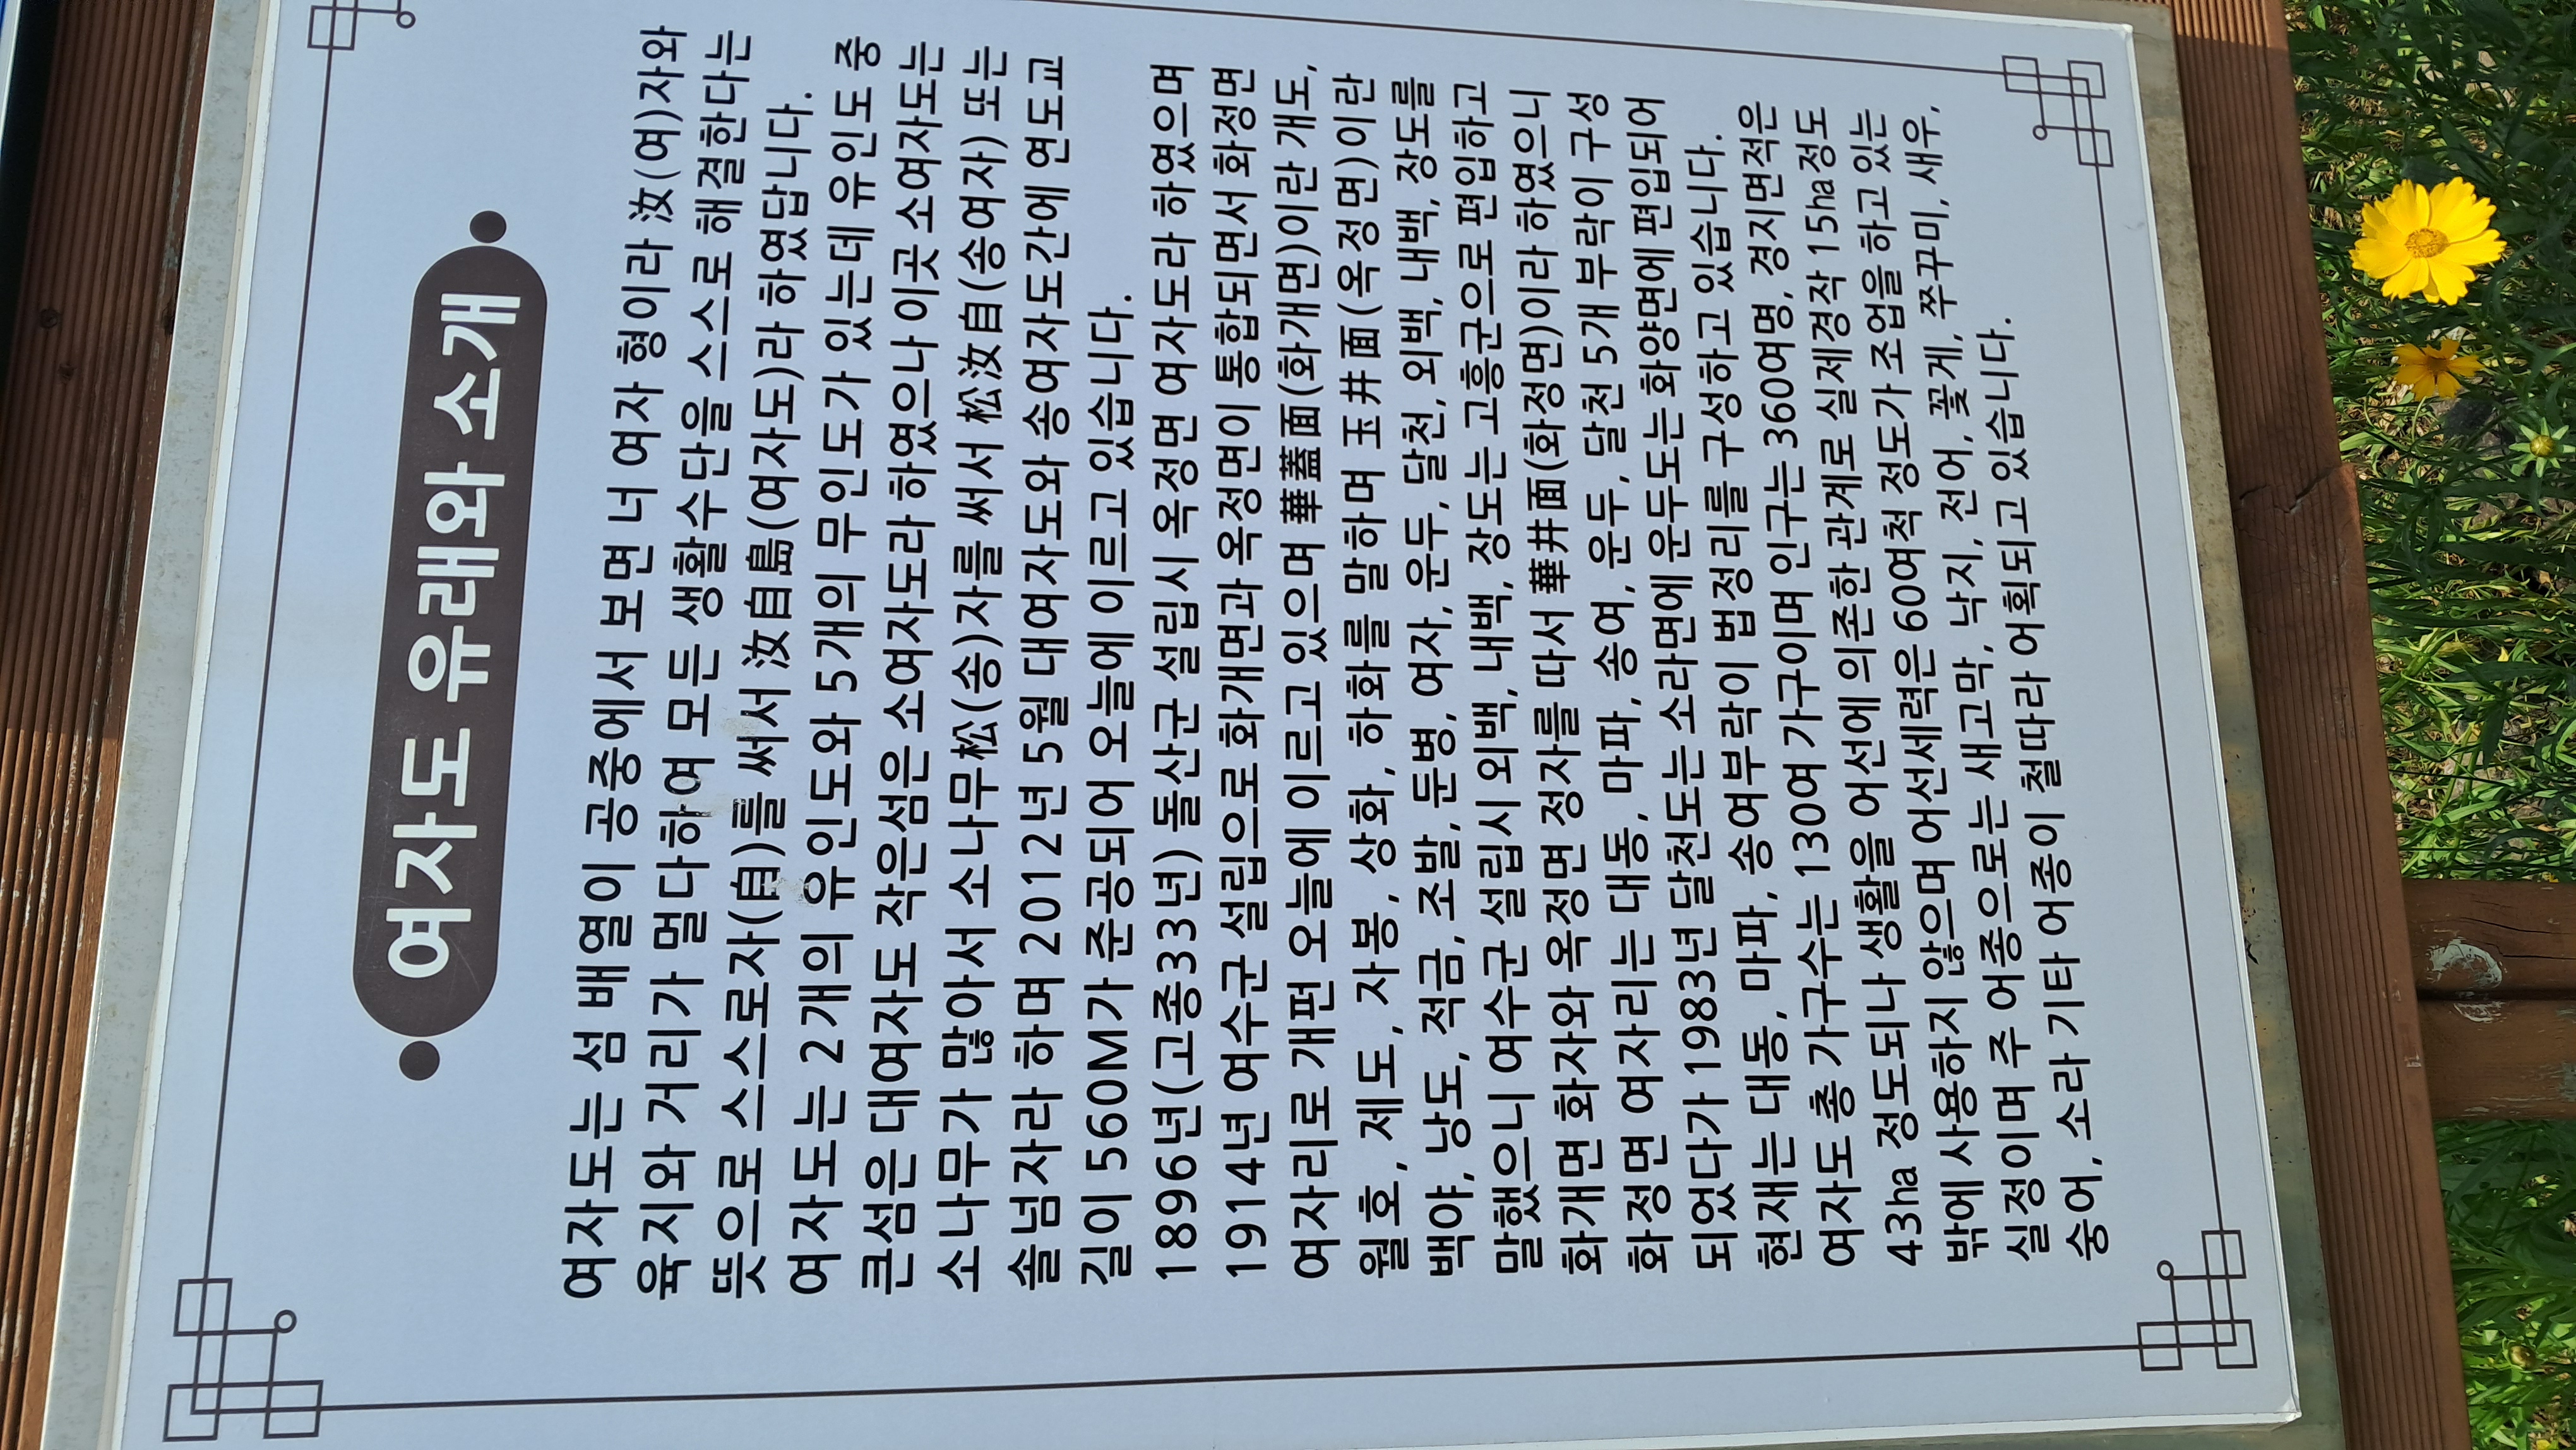 여자도 유래와 소개
여자도는 섬 배열이 공중에서 보면 너 여자 형이라 汝(여)자와
육지와 거리가 멀다하여 모든 생활수단을 스스로 해결한다는
뜻으로 스스로자(自)를 써서 汝自島(여자도)라 하였답니다.
여자도는 2개의 유인도와 5개의 무인도가 있는데 유인도 중
큰섬은 대여자도 작은섬은 소여자도라 하였으나 이곳 소여자도는
소나무가 많아서 소나무松(송)자를 써서 松汝自(송여자) 또는
솔넘자라 하며 2012년 5월 대여자도와 송여자도간에 연도교
길이 560M가 준공되어 오늘에 이르고 있습니다.
1896년(고종33년) 돌산군 설립시 옥정면 여자도라 하였으며
1914년 여수군 설립으로 화개면과 옥정면이 통합되면서 화정면
여자리로 개편 오늘에 이르고 있으며 華蓋面(화개면)이란 개도,
월호, 제도, 자봉, 상화, 하화를 말하며 玉井面(옥정면)이란
백야, 낭도, 적금, 조발, 둔병, 여자, 운두, 달천, 외백, 내백, 장도를
말했으니 여수군 설립시 외백, 내백, 장도는 고흥군으로 편입하고
화개면 화자와 옥정면 정자를 따서 華井面(화정면)이라 하였으니
화정면 여자리는 대동, 마파, 송여, 운두, 달천 5개 부락이 구성
되었다가 1983년 달천도는 소라면에 운두도는 화양면에 편입되어
현재는 대동, 마파, 송여부락이 법정리를 구성하고 있습니다.
여자도 총 가구수는 130여 가구이며 인구는 360여명, 경지면적은
43ha 정도되나 생활을 어선에 의존한 관계로 실제경작 15ha정도
밖에 사용하지 않으며 어선세력은 60여척 정도가 조업을 하고 있는
실정이며 주 어종으로는 새고막, 낙지, 전어, 꽃게, 쭈꾸미, 새우,
숭어, 소라 기타 어종이 철따라 어획되고 있습니다.